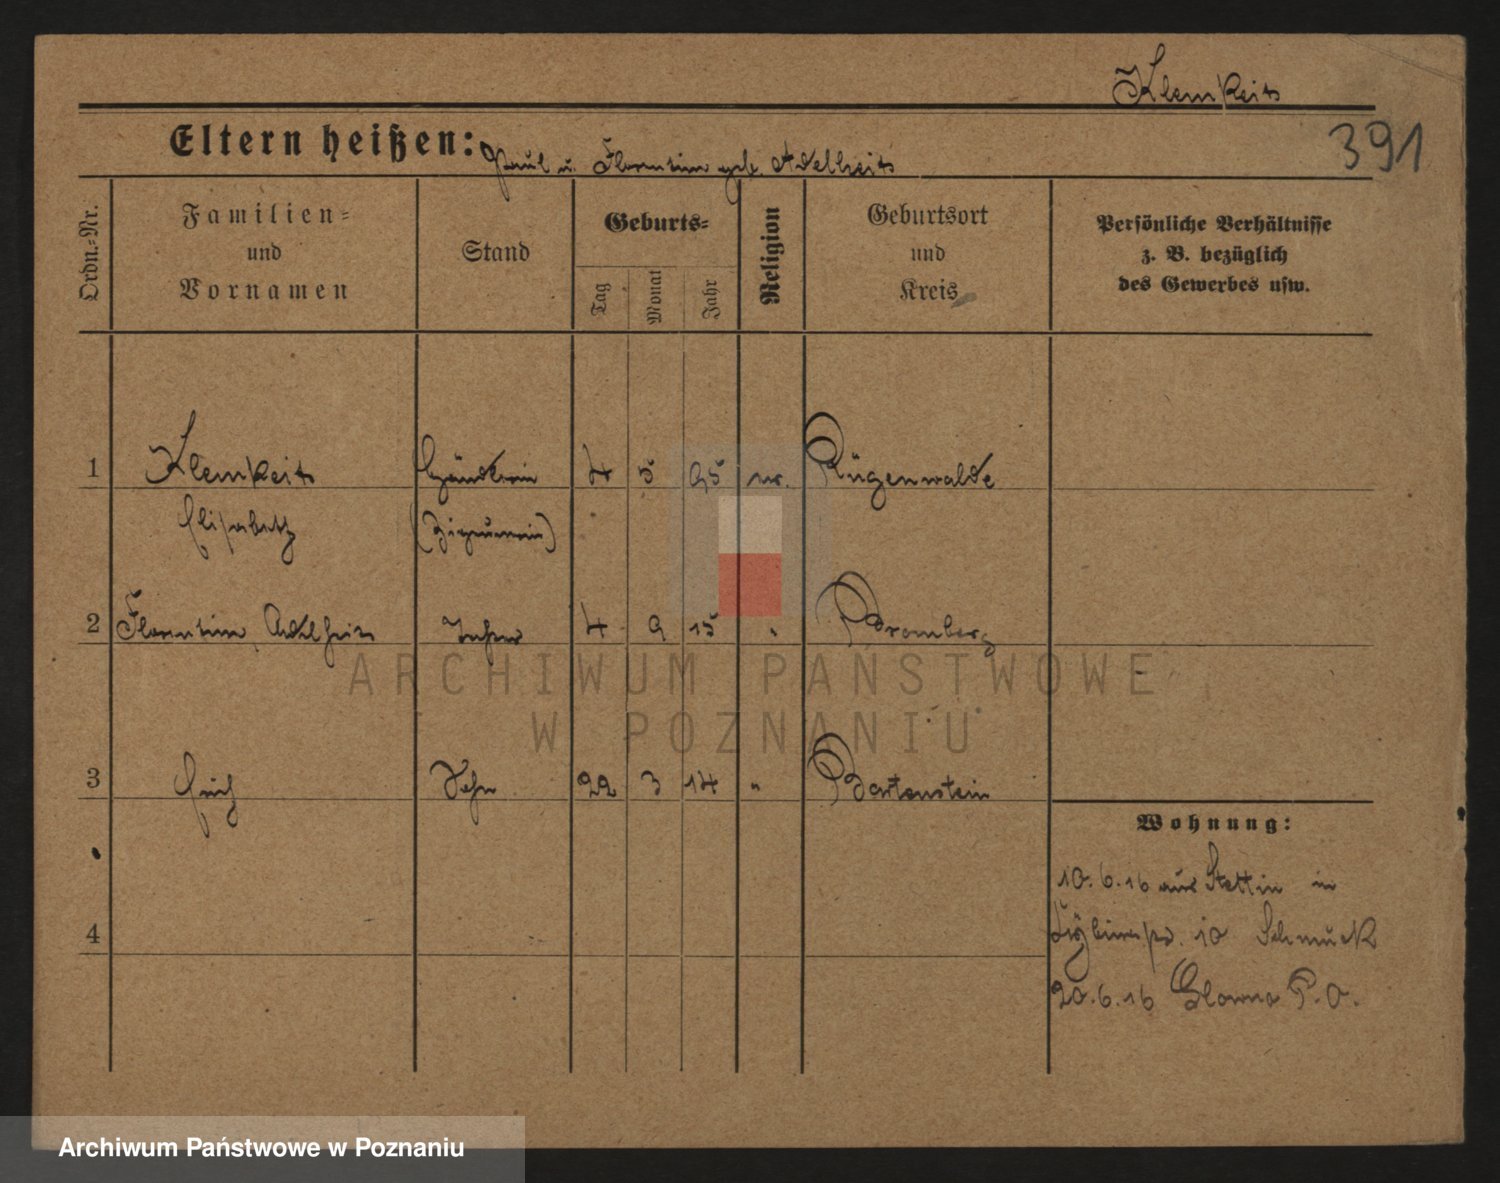 Klemkeits
391
Eltern heißen: Paul u. Florentine geb. Adelheits
Ordn.-Nr.
Familien-
und
Vornamen
Stand
Geburts-
Tag
Monat
Jahr
Religion
Geburtsort
und
Kreis
Persönliche Verhältnisse
z. B. bezüglich
des Gewerbes usw.
1 Klemkeits Händlerin 4 5 95 Rügenwalde
Elisabeth (Zigeunerin)
2 Florentine 4 9 15 " Bromberg
3 Erich Sohn 22 3 14 " Bartenstein
4
Wohnung:
10.6.16 aus Stettin in
10 Schmuck
20.6.16 Glowno P.O.
ARCHIWUM PAŃSTWOWE
W POZNANIU
Archiwum Państwowe w Poznaniu